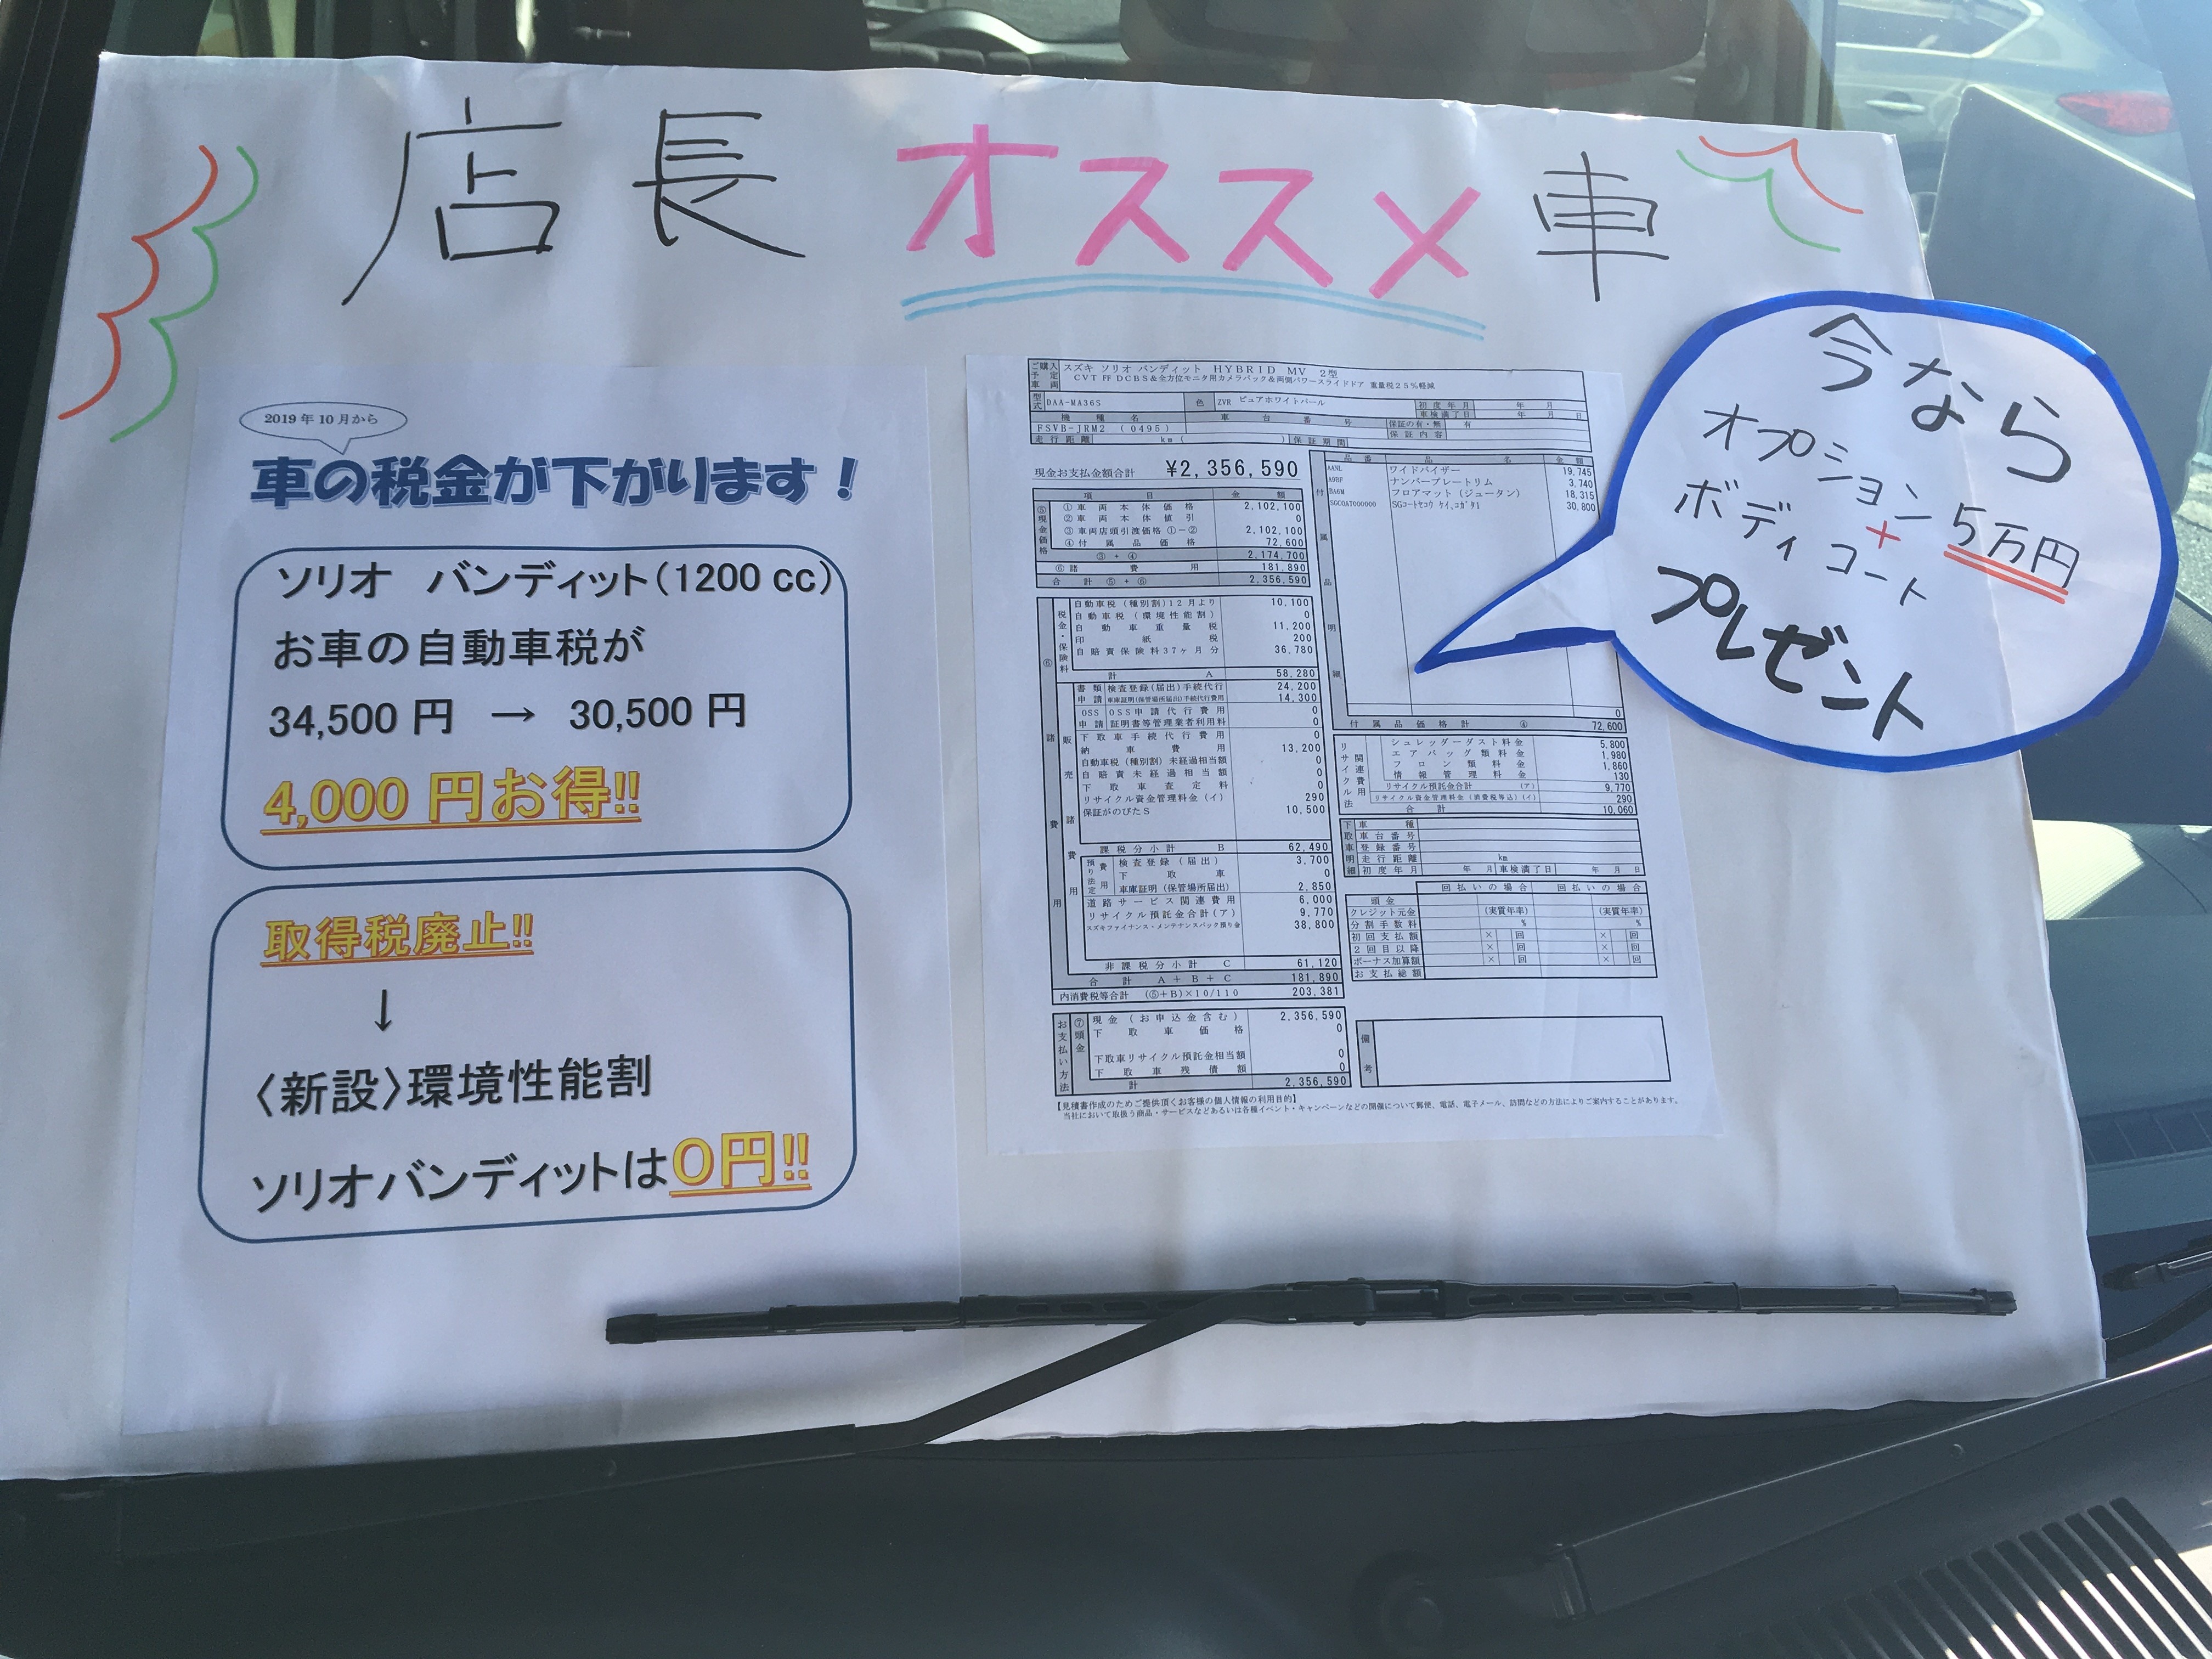 店長オススメ車
2019年10月から
車の税金が下がります！
ソリオ　バンディット（1200 cc）
お車の自動車税が
34,500 円　→　30,500 円
4,000 円お得!!
取得税廃止!!
↓
〈新設〉環境性能割
ソリオバンディットは０円!!
今なら
オプション5万円
+
ボディコート
プレゼント
ご購入予定車両
スズキ ソリオ バンディット HYBRID MV 2型
CVT FF DCBS＆全方位モニタ用カメラパック＆両側パワースライドドア 重量税25％軽減
型式 DAA-MA36S 色 ZVR ピュアホワイトパール 初度年月 年 月
車検満了日 年 月 日
機種名 車台番号 保証の有・無 有
FSVB-JRM2 (0495) 保証内容
走行距離 km ( ) 保証期間
現金お支払金額合計 ¥2,356,590
項目 金額
⑤現金価格
①車両本体価格 2,102,100
②車両本体値引 0
③車両店頭引渡価格 ①－② 2,102,100
④付属品価格 72,600
③＋④ 2,174,700
⑥諸費用 181,890
合計 ⑤＋⑥ 2,356,590
⑥諸費用
税金・保険料
自動車税（種別割）12月より 10,100
自動車税（環境性能割） 0
自動車重量税 11,200
印紙税 200
自賠責保険料37ヶ月分 36,780
計 A 58,280
販売諸費用
書類 検査登録(届出)手続代行 24,200
申請 車庫証明(保管場所届出)手続代行費用 14,300
OSS OSS申請代行費用 0
申請 証明書等管理業者利用料 0
下取車手続代行費用 0
納車費用 13,200
自動車税（種別割）未経過相当額 0
自賠責未経過相当額 0
下取車査定料 0
リサイクル資金管理料金（イ） 290
保証がのびたS 10,500
課税分小計 B 62,490
預り法定費用
検査登録（届出） 3,700
下取車 0
車庫証明（保管場所届出） 2,850
道路サービス関連費用 6,000
リサイクル預託金合計(ア) 9,770
スズキファイナンス・メンテナンスパック預り金 38,800
非課税分小計 C 61,120
合計 A＋B＋C 181,890
内消費税等合計 (⑤+B)×10/110 203,381
お支払い方法
⑦頭金
現金（お申込金含む） 2,356,590
下取車価格 0
下取車リサイクル預託金相当額 0
下取車残債額 0
計 2,356,590
付属品明細
品番 品名 金額
AANL ワイドバイザー 19,745
A9BF ナンバープレートリム 3,740
BA6M フロアマット（ジュータン） 18,315
SGCOAT000000 SGコートセコウ ケイ,コガタ1 30,800
0
付属品価格計 ④ 72,600
リサイクル法関連費用
シュレッダーダスト料金 5,800
エアバッグ類料金 1,980
フロン類料金 1,860
情報管理料金 130
リサイクル預託金合計 (ア) 9,770
リサイクル資金管理料金（消費税等込）(イ) 290
合計 10,060
下取車明細
車種
車台番号
登録番号
走行距離 km
初度年月 年 月 車検満了日 年 月 日
回払いの場合 回払いの場合
頭金
クレジット元金 (実質年率) (実質年率)
分割手数料 % %
初回支払額 × 回 × 回
2回目以降 × 回 × 回
ボーナス加算額 × 回 × 回
お支払総額
備考
【見積書作成のためご提供頂くお客様の個人情報の利用目的】
当社において取扱う商品・サービスなどあるいは各種イベント・キャンペーンなどの開催について郵便、電話、電子メール、訪問などの方法によりご案内することがあります。